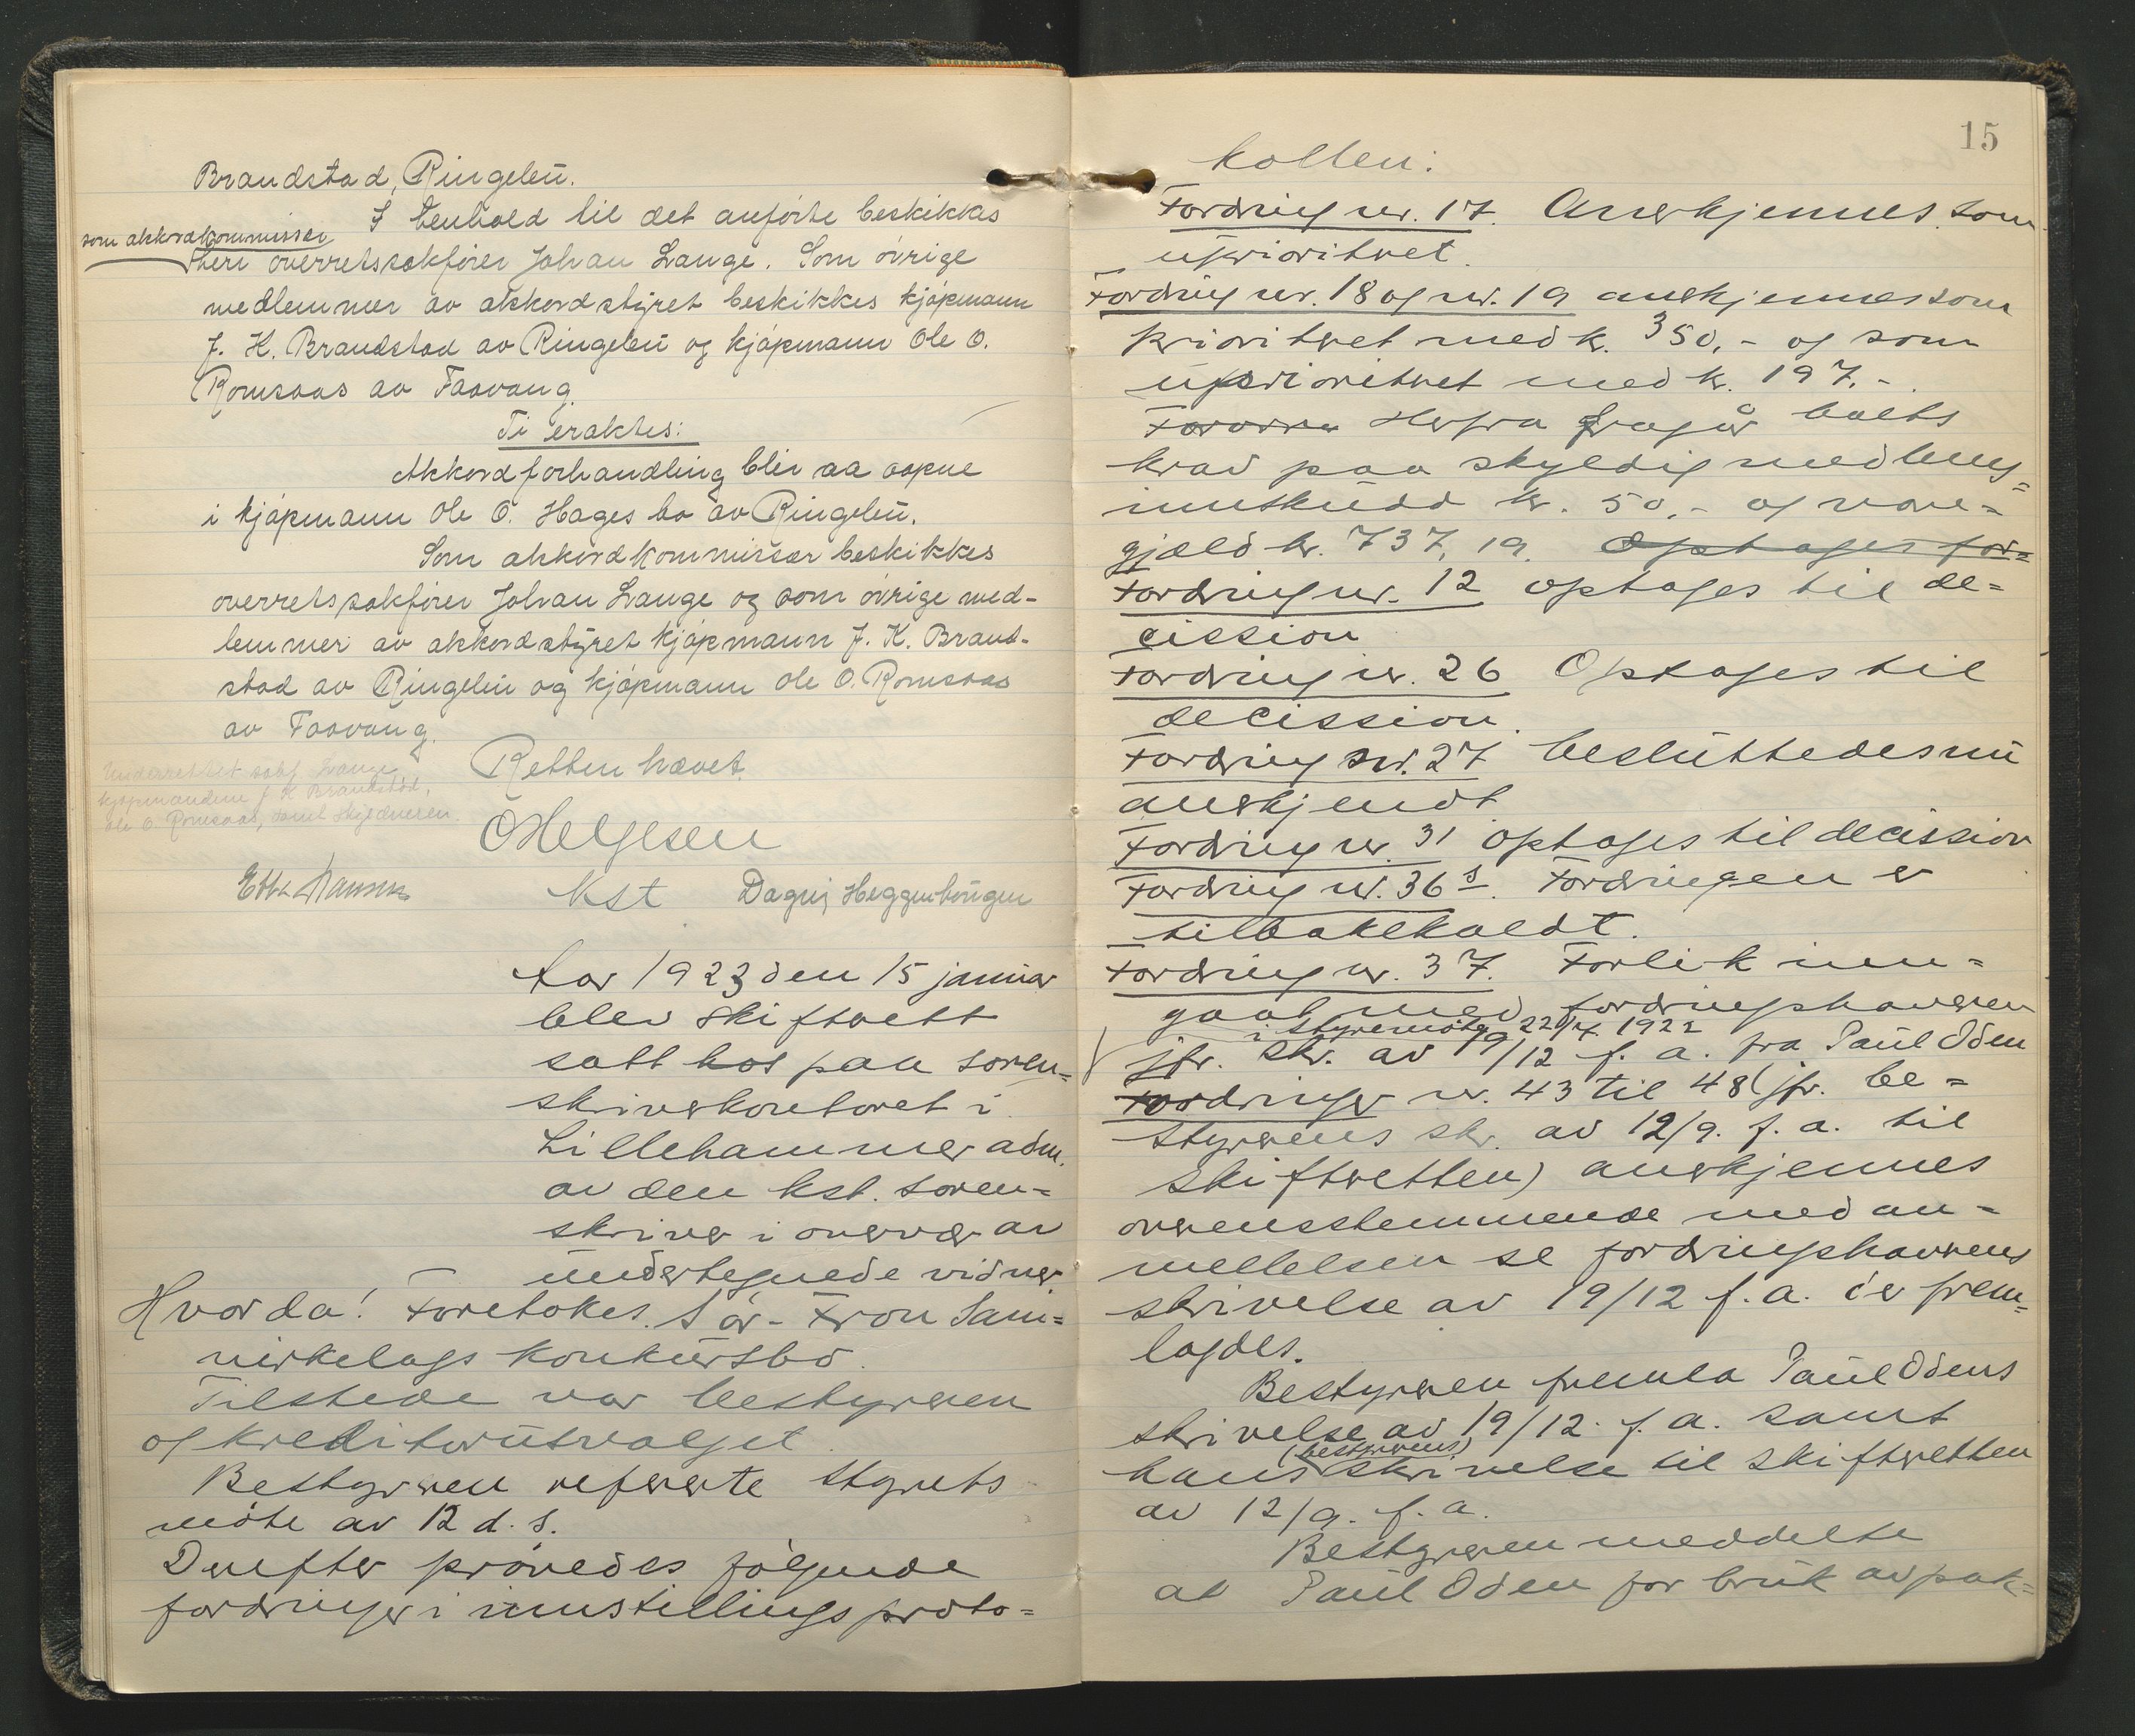 Brandstad, Ringebu.
I henhold til det anførte beskikkes
som akkordkommissær
herr overretssakfører Johan Lange. Som øvrige
medlemmer av akkordstyret beskikkes kjøpmann
J. K. Brandstad av Ringebu og kjøpmann Ole O.
Romsaas av Faavang.
Ti eraktes:
Akkordforhandling blir aa aapne
i kjøpmann Ole O. Hages bo av Ringebu.
Som akkordkommissær beskikkes
overretssakfører Johan Lange og som øvrige med-
lemmer av akkordstyret kjøpmann J. K. Brand-
stad av Ringebu og kjøpmann Ole O. Romsaas
av Faavang.
Retten hævet.
Underrettet sakf Lange
kjøpmændene J K Brandstad,
Ole O. Romsaas, samt skyldneren.
O Helgesen
kst
Dagny Heggenhougen
Aar 1923 den 15 januar
blev skifterett
satt hos paa soren=
skriverkontoret i
Lillehammer adm.
av den kst. soren=
skriver i overvær av
undertegnede vidner
Hvorda! Foretokes Sør-Fron Sam=
virkelags konkursbo.
Tilstede var bestyreren
og kreditorutvalget.
Bestyreren refererte styrets
møte av 12 d. s.
Derefter prøvedes følgende
fordringer i innstillingsproto=
15
kollen:
Fordring nr. 17. Anerkjennes som
uprioritert.
Fordring nr. 18 og nr. 19 anerkjennes som
prioritert med k. 350,- og som
uprioritert med k. 197.-
Herfra fragår boets
krav paa skyldig medlems=
innskudd kr. 50,- og vare=
gjæld kr. 737,19. Optages for=
Fordring nr. 12 optages til de=
cission
Fordring nr. 26 Optages til
decission.
Fordring nr. 27 besluttedes nu
anerkjendt
Fordring nr. 31 optages til decission
Fordring nr. 36 s. Fordringen er
tilbakekaldt.
Fordring nr. 37. Forlik inn=
gaat med fordringshaveren
i styremøte 22/4 1922
jfr. skr. av 19/12 f. a. fra Paul Oden
Fordringer nr. 43 til 48 (jfr. be=
styrerens skr. av 12/9. f. a. til
skifteretten) anerkjennes
overensstemmende med an=
mellelsen se fordringshaverens
skrivelse av 19/12 f. a. er frem=
lagdes.
Bestyreren fremla Paul Odens
skrivelse av 19/12. f. a. samt
(bestyrerens)
hans skrivelse til skifteretten
av 12/9. f. a.
Bestyreren meddelte
at Paul Oden for bruk av pak=